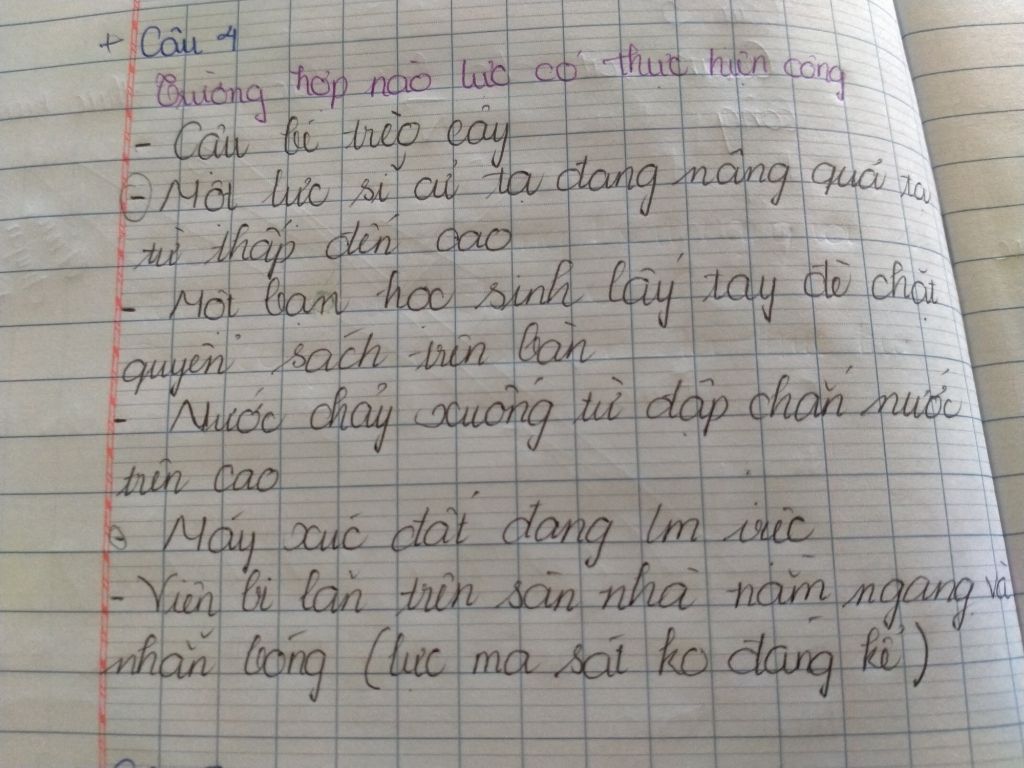 + Câu 4
Trường hợp nào lực có thực hiện công
- Cậu bé trèo cây
- Một lực sĩ cử tạ đang nâng quả tạ
từ thấp đến cao
- Một bạn học sinh lấy tay đè chặt
quyển sách trên bàn
- Nước chảy xuống từ đập chắn nước
trên cao
- Máy xúc đất đang lm việc
- Viên bi lăn trên sàn nhà nằm ngang và
nhẵn bóng (lực ma sát ko đáng kể)